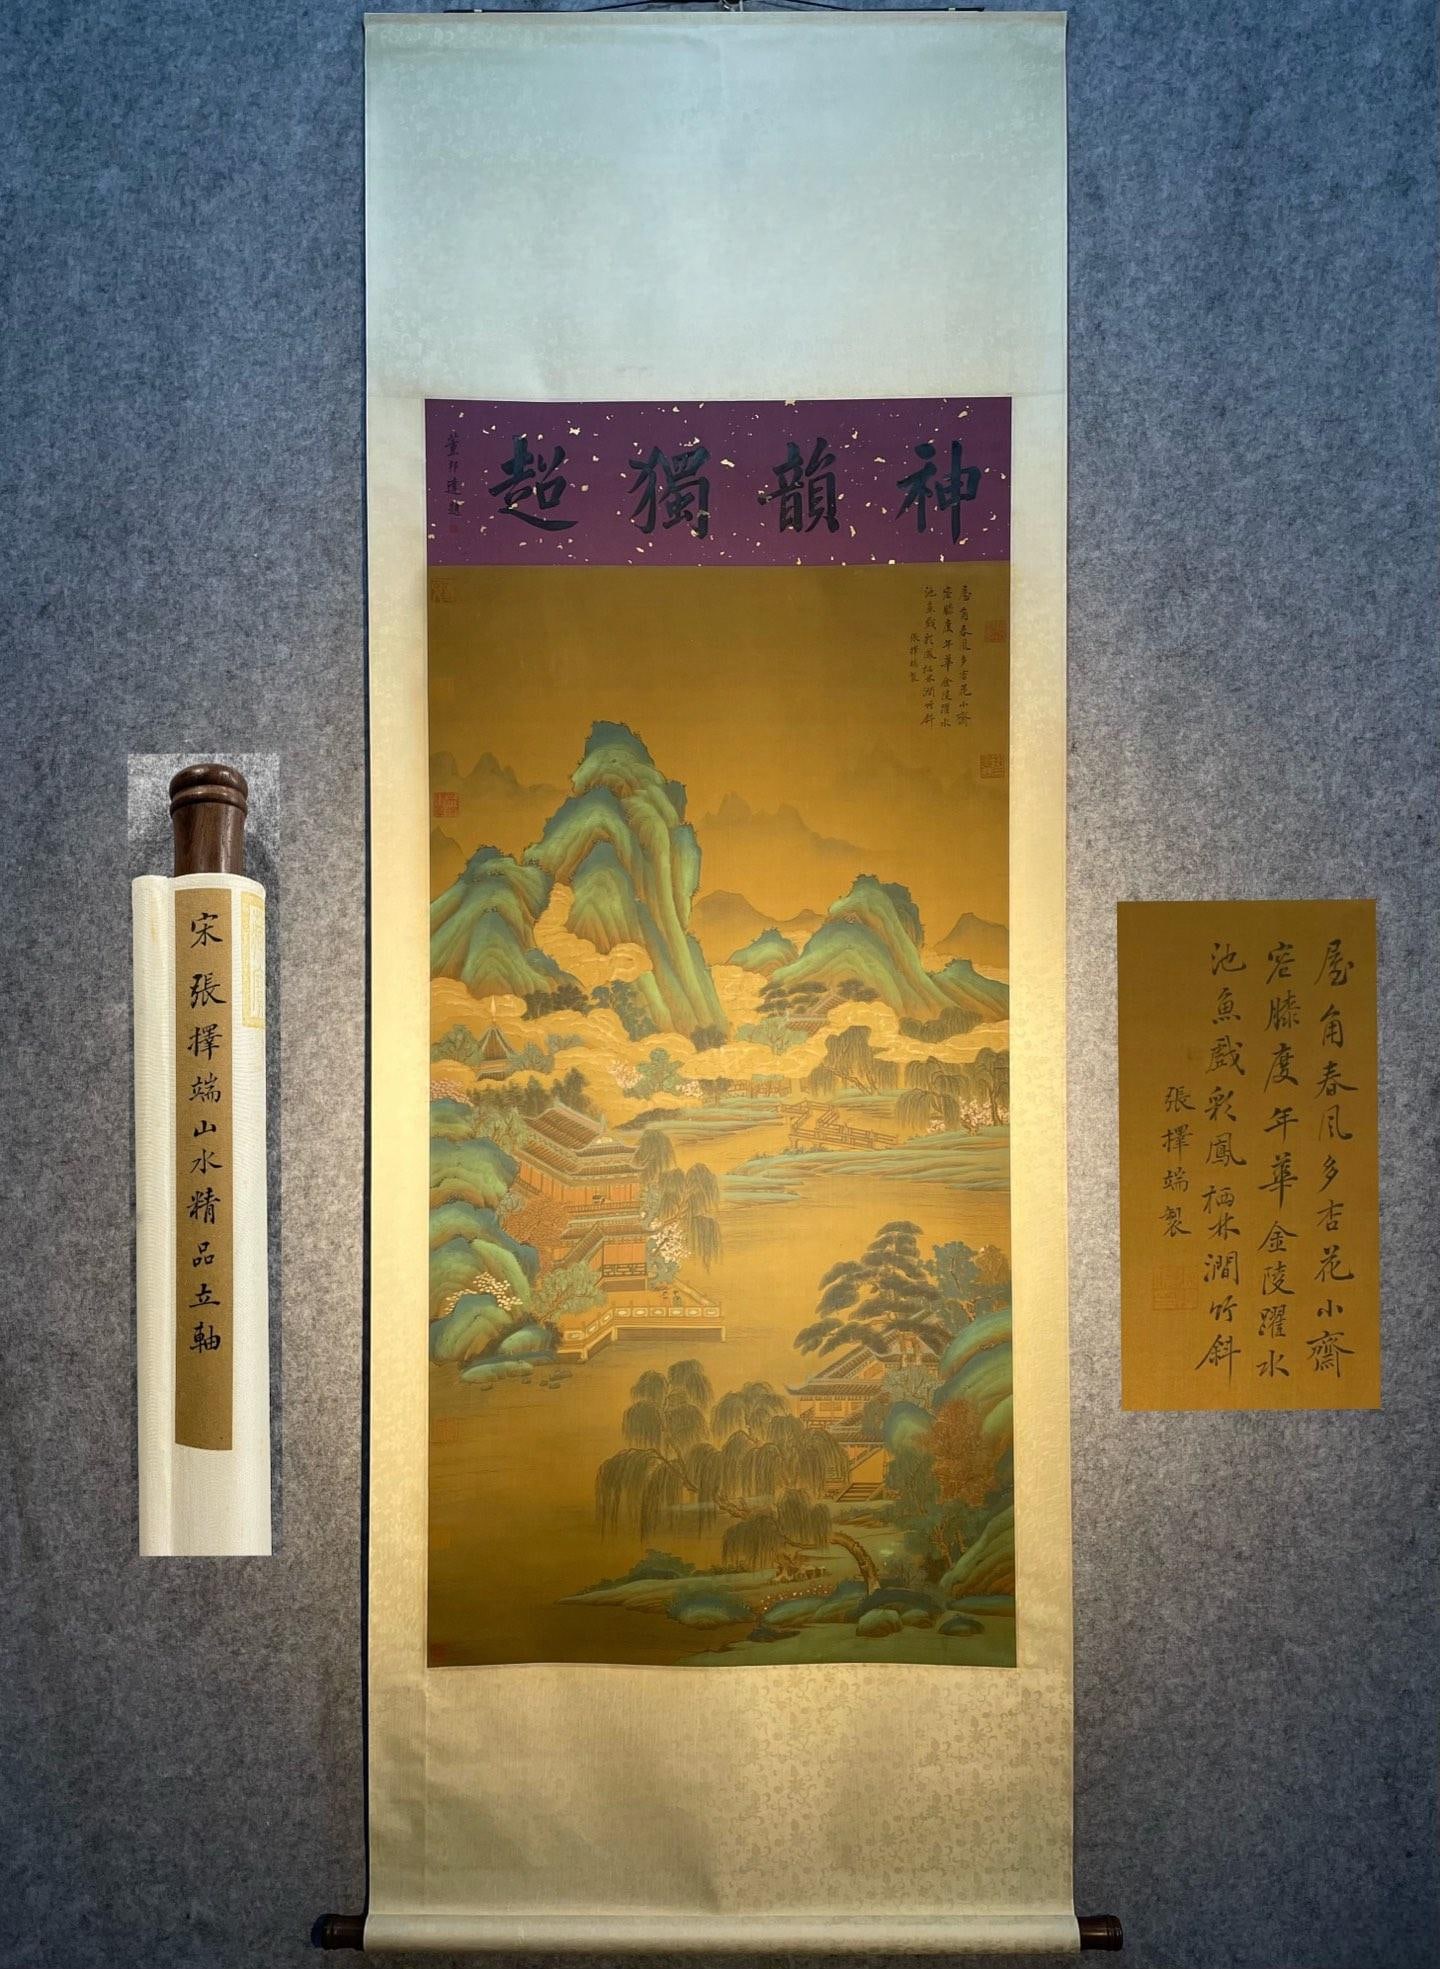 神韻獨超
董邦達題
屋角春風多杏花小齋
容膝度年華金陵躍水
池魚戲彩鳳栖林澗竹斜
張擇端製
宋張擇端山水精品立軸
屋角春風多杏花小齋
容膝度年華金陵躍水
池魚戲彩鳳栖林澗竹斜
張擇端製